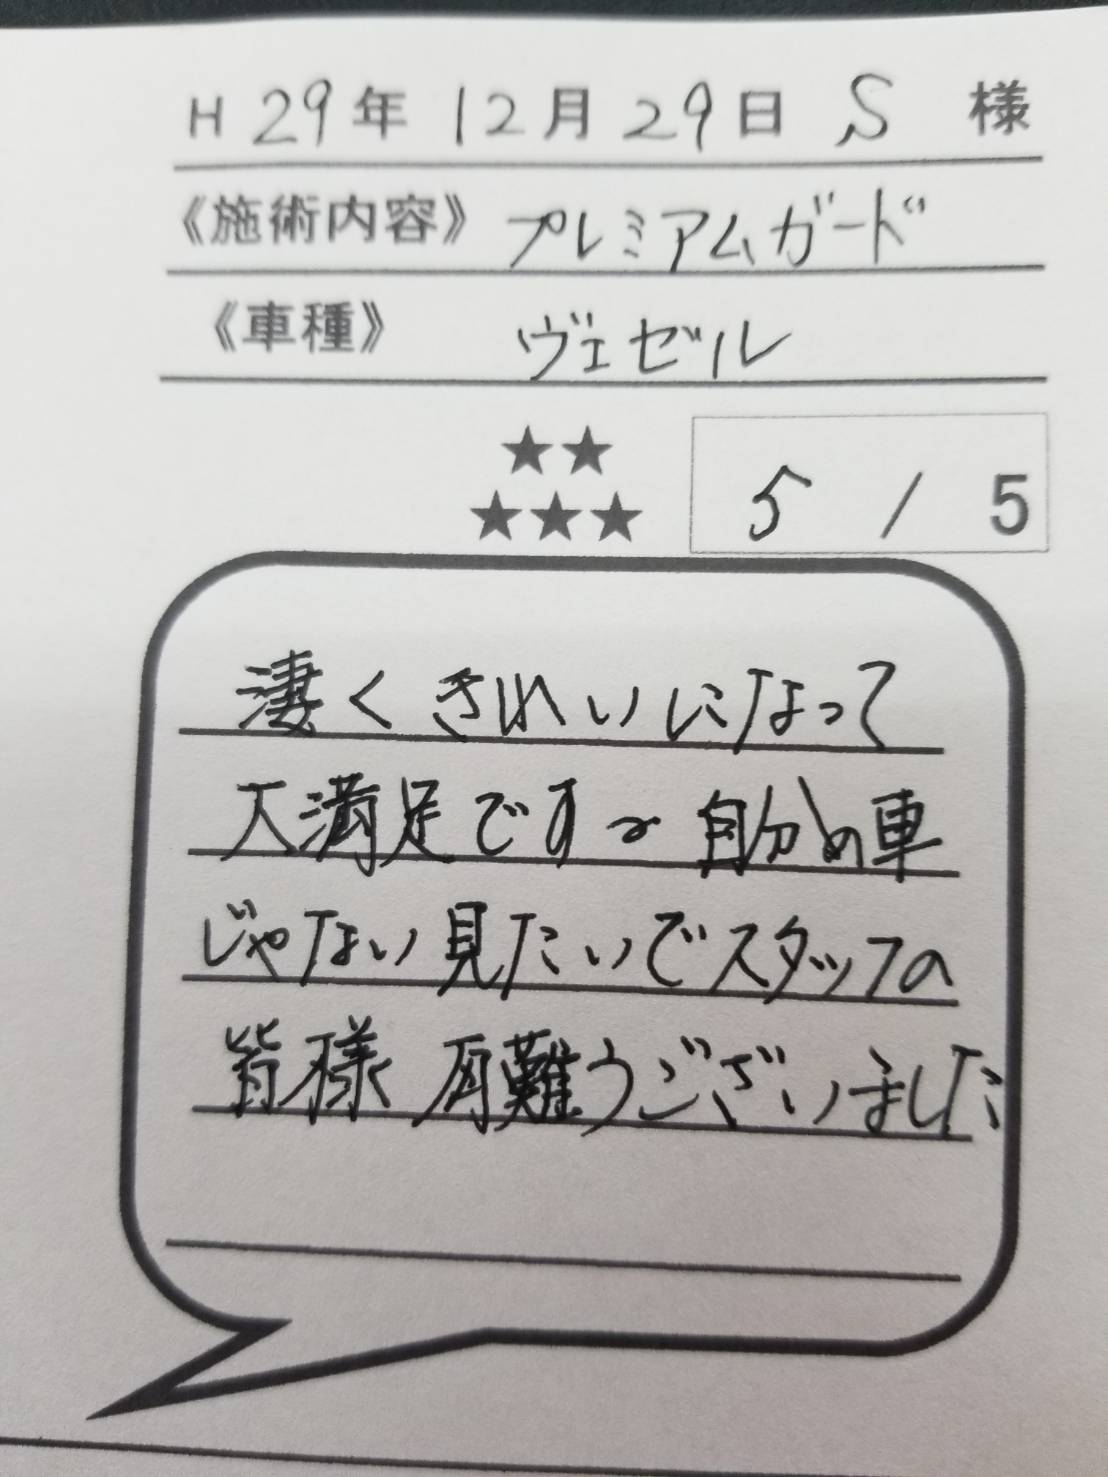 H 29年 12月 29日 S 様
《施術内容》 プレミアムガード
《車種》 ヴェゼル
★★
★★★ 5 / 5
凄くきれいになって
大満足です〜自分の車
じゃない見たいでスタッフの
皆様 有難うございました